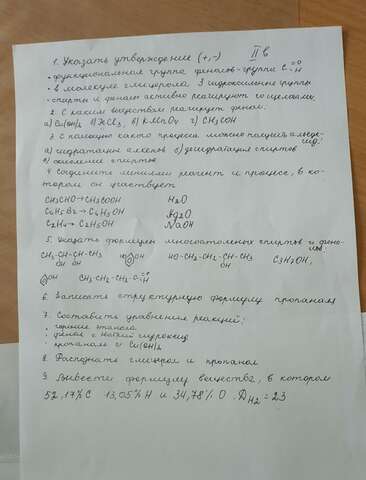 1. Указать утверждение (+,-) II в
- функциональная группа фенолов-группа C=O H
- в молекуле глицерола 3 гидроксильные группы
- спирты и фенолы активно реагируют со щелочами.
2. С каким веществом реагирует фенол:
а) Cu(OH)2 б) FeCl3 в) KMnO4 г) CH3COH
3 С помощью какого процесса можно получить альде-
гид.
а) гидратация алкенов б) дегидратация спиртов
в) окисление спиртов
4 Соедините линиями реагент и процесс, в ко-
тором он участвует
CH3CHO → CH3COOH H2O
C6H5Br → C6H5OH Ag2O
C2H4 → C2H5OH NaOH
5. Указать формулы многоатомных спиртов и фено-
лов
CH3-CH-CH-CH3 HO OH HO-CH2-CH2-CH-CH3 C3H7OH,
OH OH OH
OH CH3-CH2-CH2-C=O H
6. Записать структурную формулу пропаналя
7. Составить уравнения реакций:
- горение этанола
- фенол с
- пропаналь и Cu(OH)2
8. Распознать глицерол и пропанол
9. Вывести формулу вещества, в котором
52,17% C 13,05% H и 34,78% O. DH2 = 23